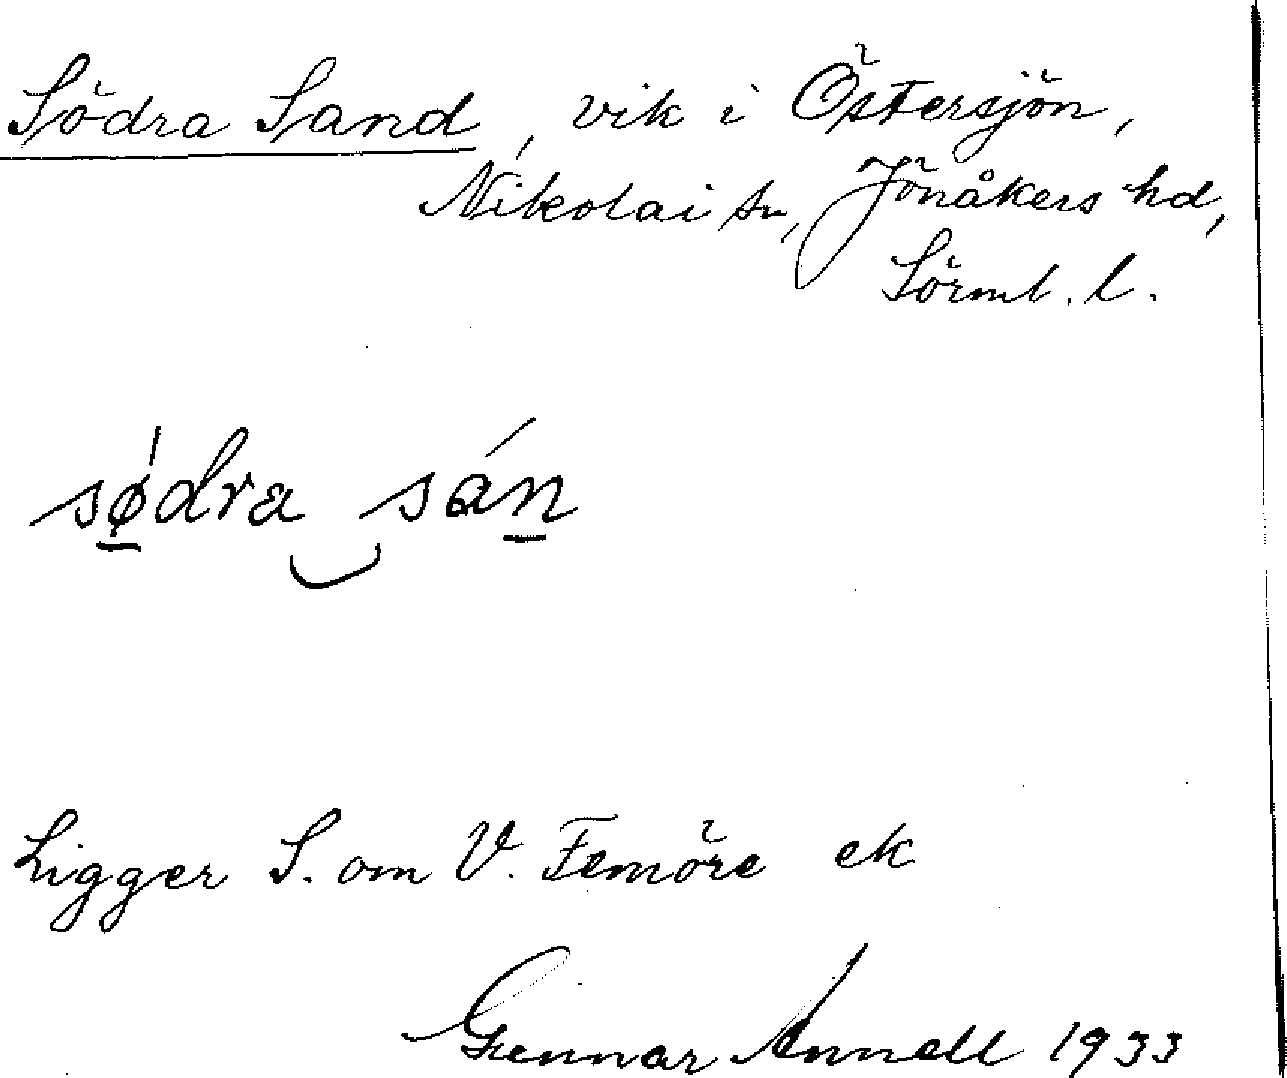 Södra Sand, vik i Östersjön,
Nikolai sn, Jönåkers hd,
Sörml. l.
sǿ̱dra‿sán̲
Ligger S. om V. Femöre ek
Gunnar Annell 1933